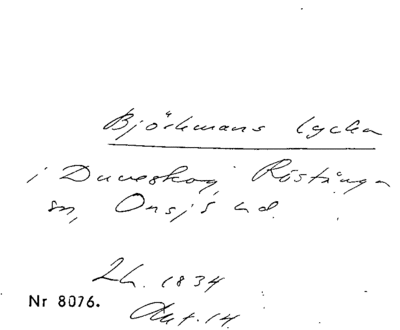 Björkmans lycka
i Duveskog, Röstånga
sn, Onsjö hd.
Lh. 1834
Nr 8076.
Akt. 14